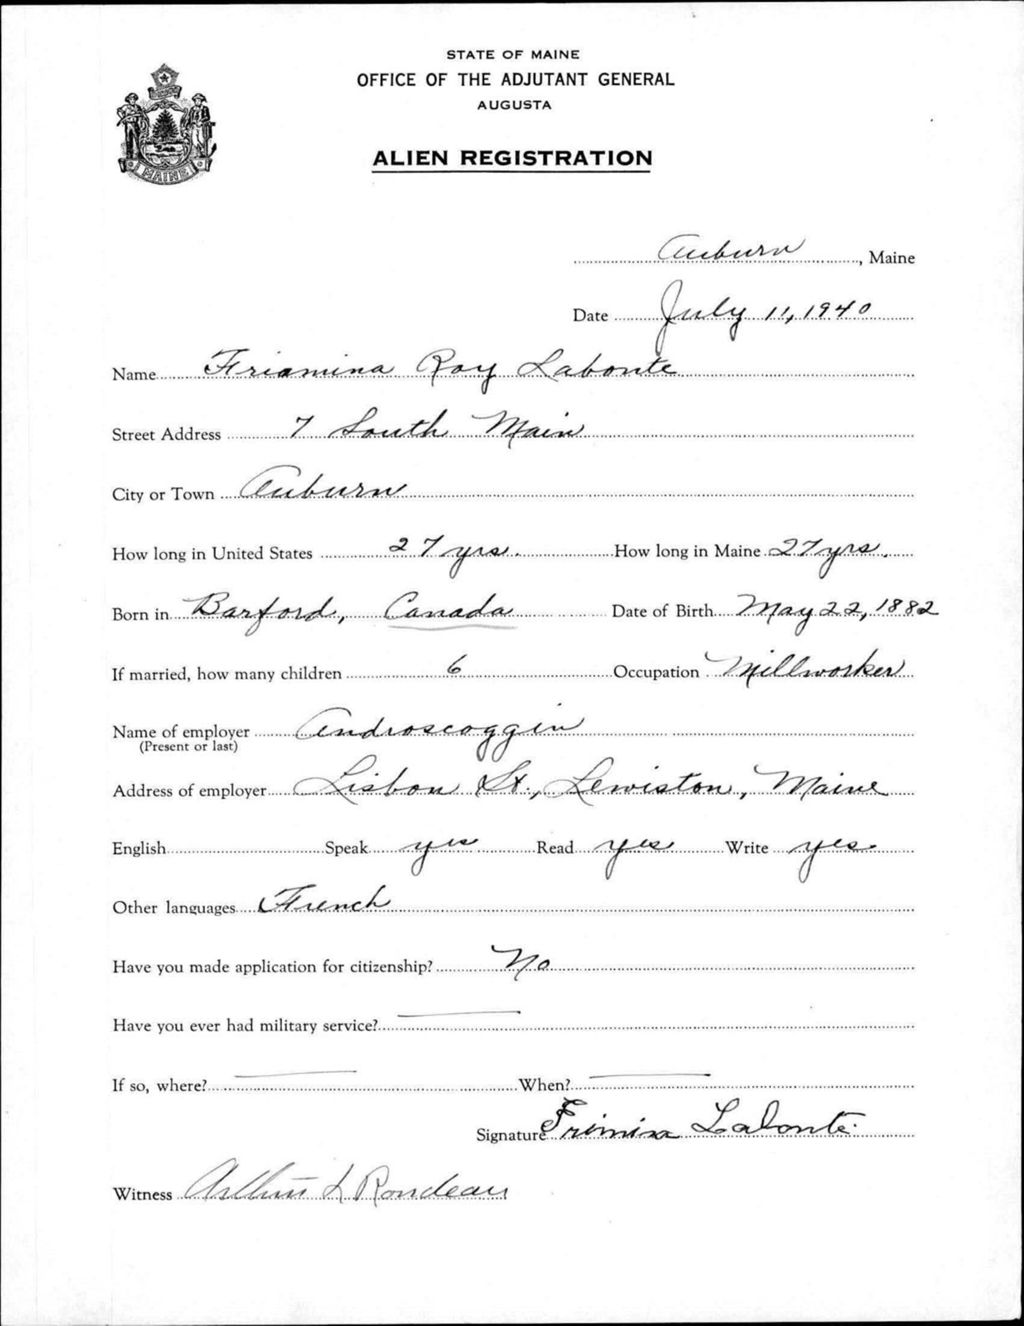 STATE OF MAINE
OFFICE OF THE ADJUTANT GENERAL
AUGUSTA
ALIEN REGISTRATION
MAINE
Auburn, Maine
Date July 11, 1940
Name Friamina Roy Labonte
Street Address 7 South Main
City or Town Auburn
How long in United States 27 yrs. How long in Maine 27 yrs.
Born in Barford, Canada Date of Birth May 22, 1882
If married, how many children 6 Occupation Millworker
Name of employer Androscoggin
(Present or last)
Address of employer Lisbon St., Lewiston, Maine
English Speak yes Read yes Write yes
Other languages French
Have you made application for citizenship? No
Have you ever had military service?
If so, where? When?
Signature Frimina Labonte
Witness Arthur L Rondeau